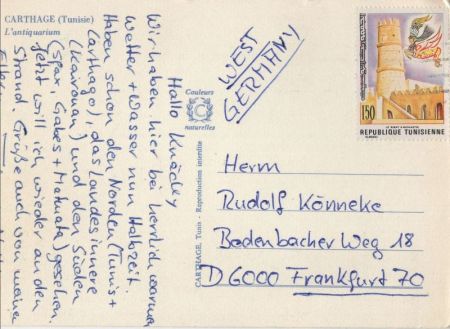 CARTHAGE (Tunisie)
L'antiquarium
Hallo Knäcky
Wir haben hier bei herrlich warmem
Wetter + Wasser nun Halbzeit.
Haben schon den Norden (Tunis +
Carthago), das Landesinnere
(Kairouan) und den Süden
(Sfax, Gabes + Matmata) gesehen.
Jetzt will ich wieder an den
Strand. Grüße auch von meiner
Couleurs
naturelles
CARTHAGE, Tunis - Reproduction interdite
WEST
GERMANY
150
REPUBLIQUE TUNISIENNE
Herrn
Rudolf Könneke
Bodenbacher Weg 18
D 6000 Frankfurt 70